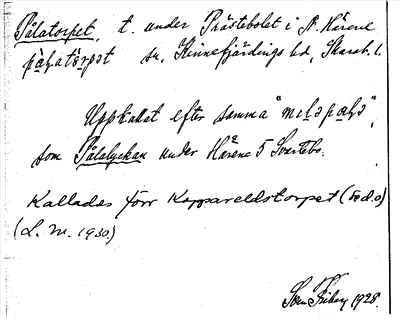 Pålatorpet, t. under Prästebolet i N. Härene
pålatòrpet sn, Kinnefjärdings hd, Skarab. l.
Uppkallat efter samma "miləpalə",
som Pålalyckan under Härene 5 Svartebo.
Kallades förr Kappareldstorpet (Fo.d.o)
(L. M. 1930.)
Sven Friberg 1928.